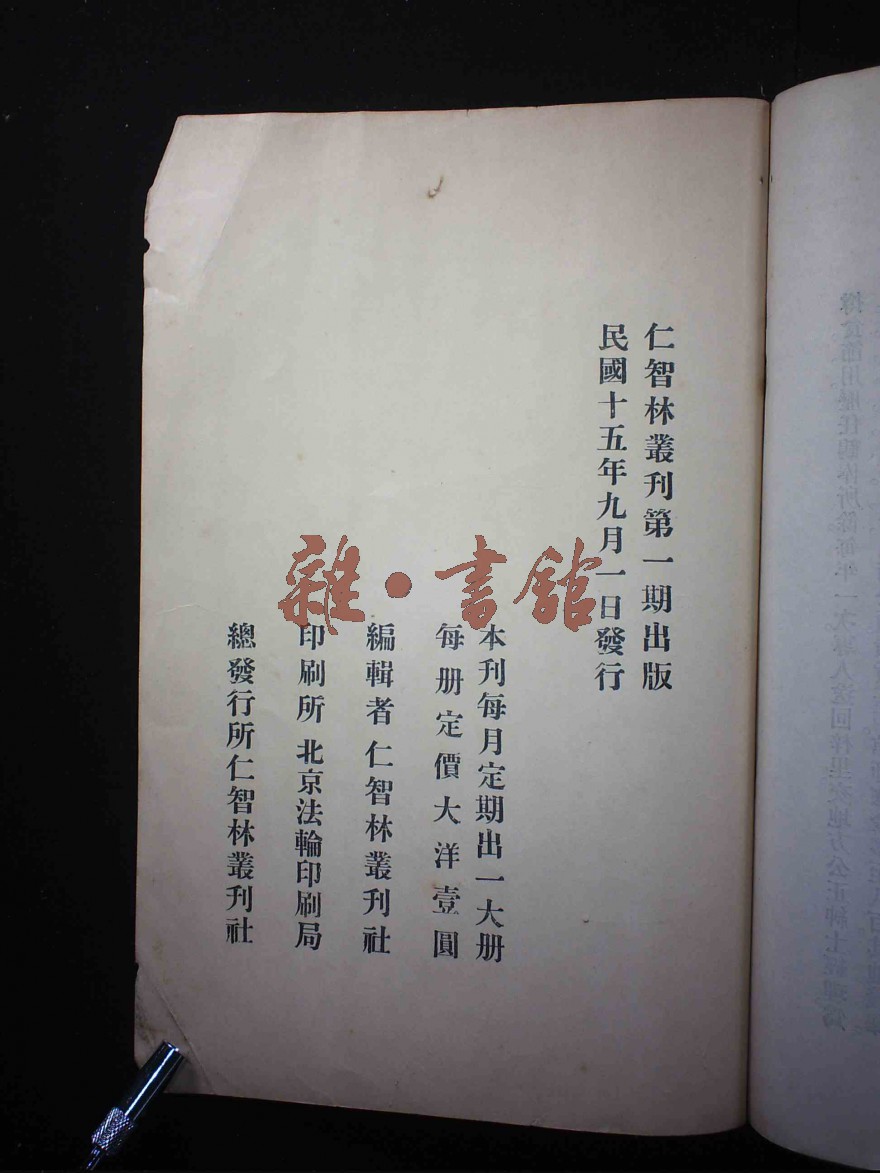 仁智林叢刊第一期出版
民國十五年九月一日發行
本刊每月定期出一大册
每册定價大洋壹圓
編輯者仁智林叢刊社
印刷所北京法輪印刷局
總發行所仁智林叢刊社
雜·書館